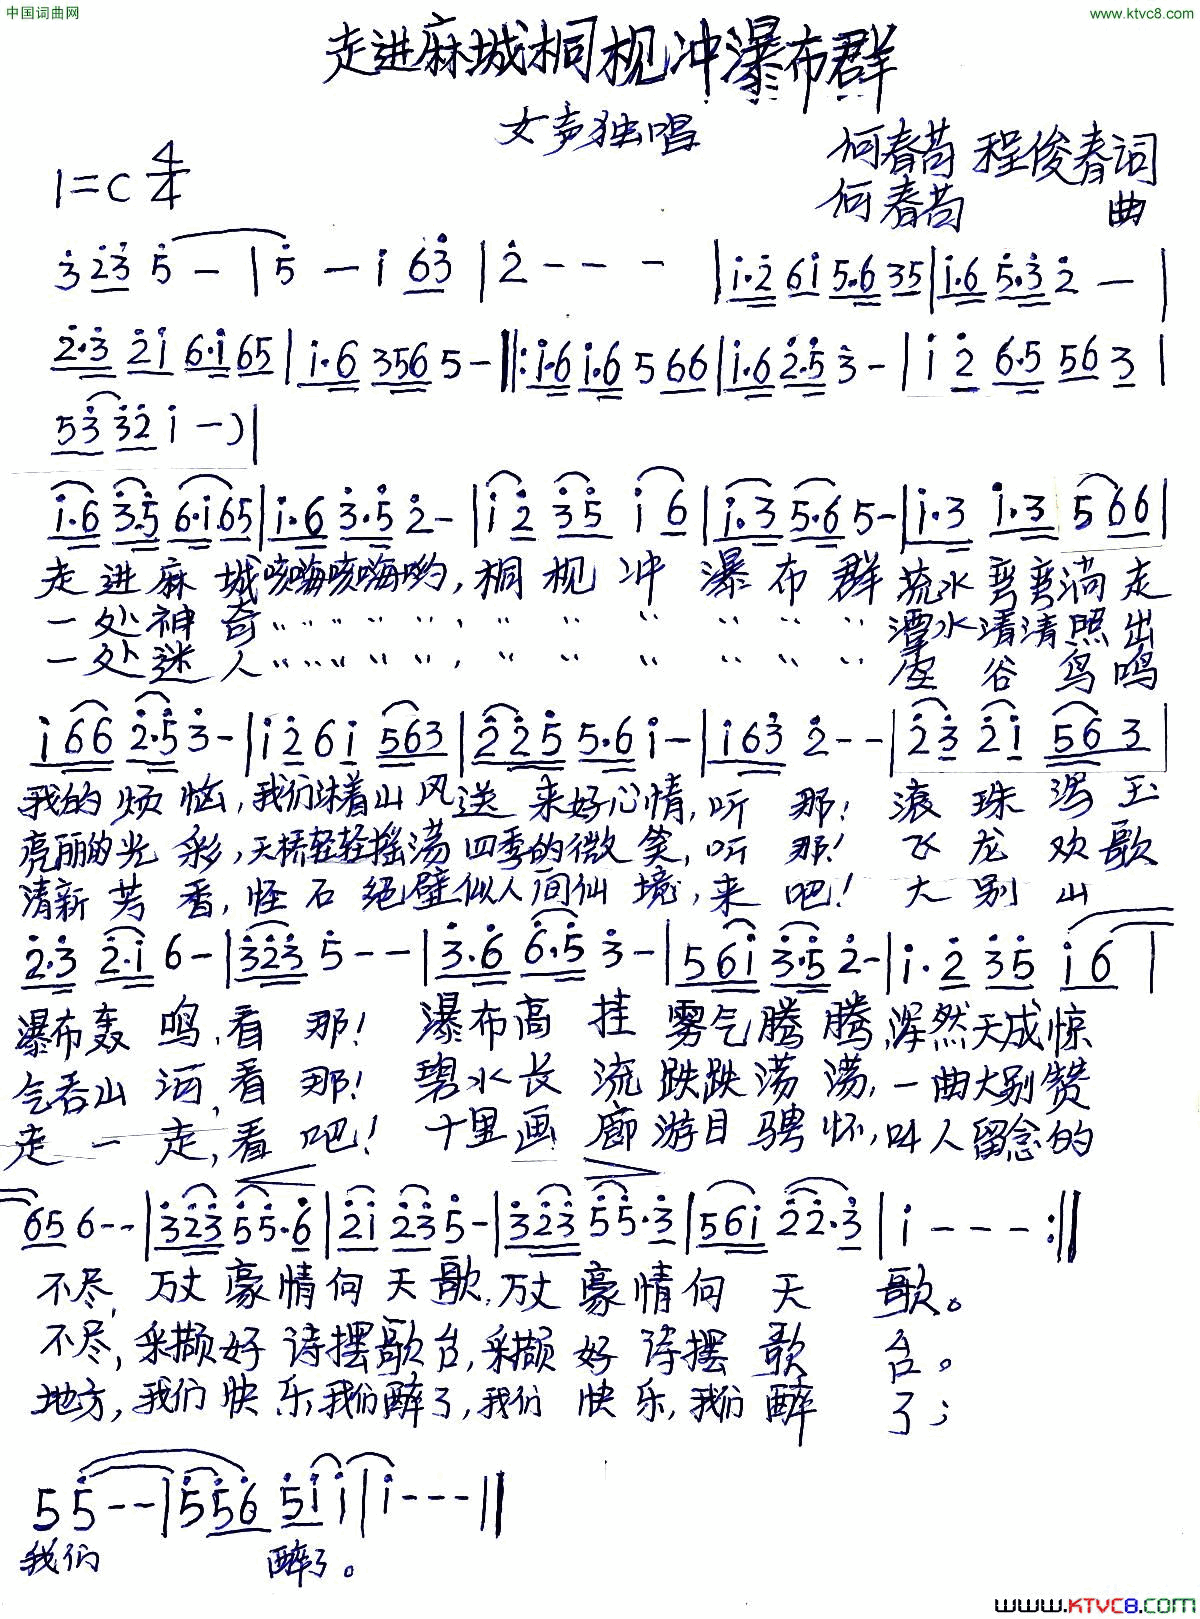 中国词曲网
www.ktvc8.com
走进麻城桐枧冲瀑布群
女声独唱
何春苟 程俊春词
1=C 4/4
何春苟 曲
3 23 5 - | 5 - i 63 | 2 - - - | i·2 6i 5·6 35 | i·6 5·3 2 - |
2·3 2i 6·i 65 | i·6 356 5 - ‖: i·6 i·6 5 66 | i·6 2·5 3 - | i 2 6·5 56 3 |
53 32 i - ) |
i·6 3·5 6·i 65 | i·6 3·5 2 - | i 2 35 i 6 | i·3 5·6 5 - | i·3 i·3 5 66 |
走进麻城咳嗨咳嗨哟，桐枧冲瀑布群流水弯弯淌走
一处神奇〃〃〃〃〃，〃〃〃〃〃〃潭水清清照出
一处迷人〃〃〃〃〃，〃〃〃〃〃〃空谷鸟鸣
i 66 2·5 3 - | i 2 6 i 563 | 225 5·6 i - | i 63 2 - - | 23 2i 56 3 |
我的烦恼，我们沐着山风送来好心情，听那！滚珠泻玉
亮丽的光彩，天桥轻轻摇荡四季的微笑，听那！飞龙欢歌
清新芳香，怪石绝壁似人间仙境，来吧！大别山
2·3 2·i 6 - | 323 5 - - | 3·6 6·5 3 - | 56i 3·5 2 - | i·2 35 i 6 |
瀑布轰鸣，看那！瀑布高挂雾气腾腾，浑然天成惊
气吞山河，看那！碧水长流跌跌荡荡，一曲大别赞
走一走，看吧！十里画廊游目骋怀，叫人留念的
65 6 - - | 323 55·6 | 2i 23 5 - | 323 55·3 | 56i 22·3 | i - - - :‖
不尽，万丈豪情向天歌，万丈豪情向天歌。
不尽，采撷好诗摆歌台，采撷好诗摆歌台。
地方，我们快乐，我们醉了，我们快乐，我们醉了；
5 5 - - | 5 56 5i i | i - - - ‖
我们醉了。
www.KTVC8.com